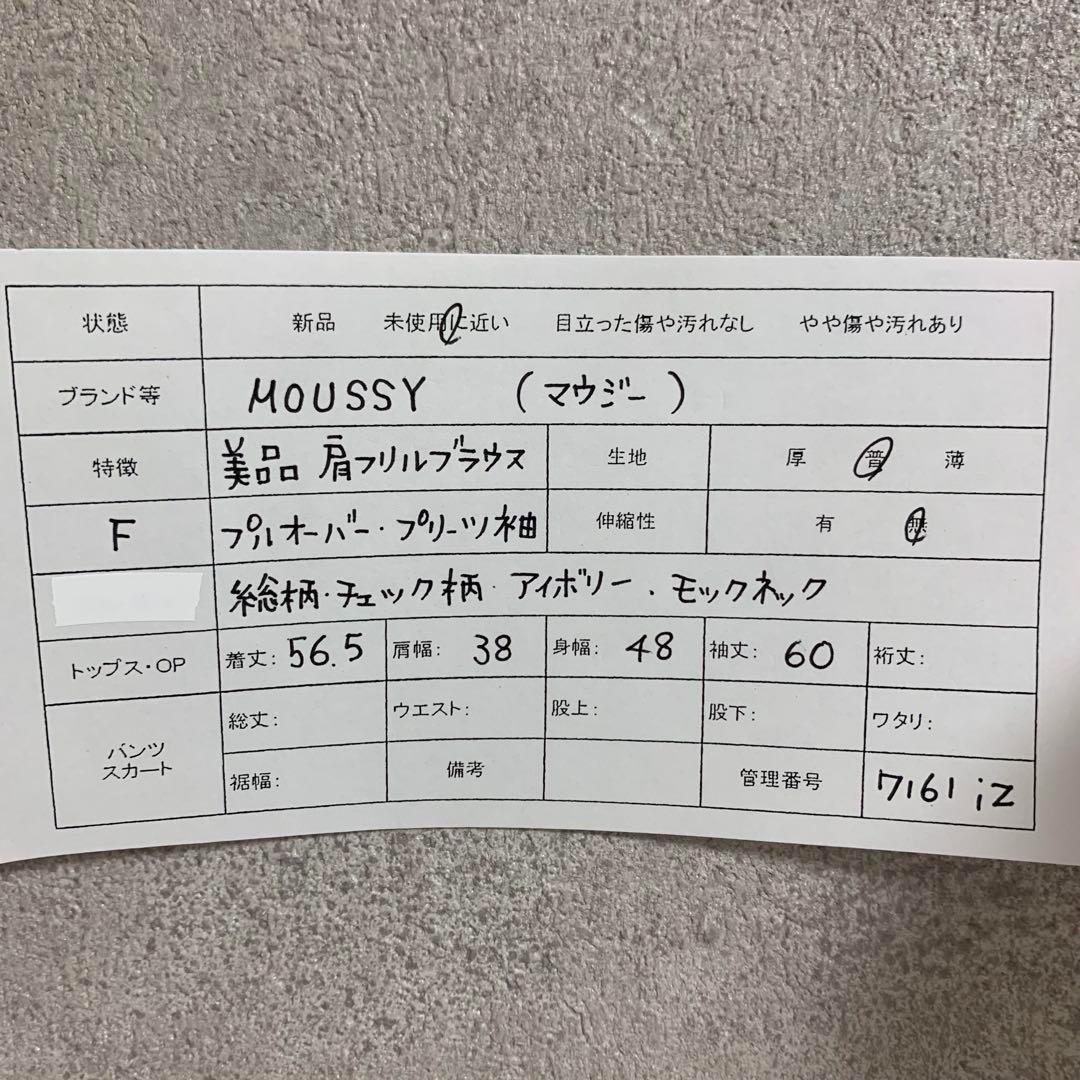 状態 新品 未使用に近い 目立った傷や汚れなし やや傷や汚れあり
ブランド等 MOUSSY (マウジー)
特徴 美品 肩フリルブラウス 生地 厚 普 薄
F プルオーバー・プリーツ袖 伸縮性 有 無
総柄・チェック柄・アイボリー・モックネック
トップス・OP 着丈: 56.5 肩幅: 38 身幅: 48 袖丈: 60 裄丈:
パンツ
スカート
総丈: ウエスト: 股上: 股下: ワタリ:
裾幅: 備考 管理番号 7161 iz